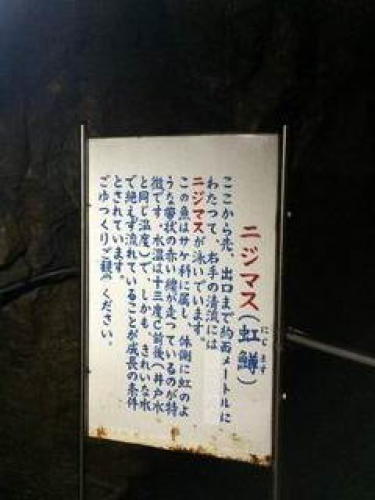 ニジマス(虹鱒)
にじます
ここから先、出口まで約百メートルに
わたつて、右手の清流には
ニジマスが泳いでいます。
この魚はサケ科に属し、体側に虹のよ
うな帯状の赤い線が走つているのが特
徴です。水温は十三度C前後(井戸水
と同じ温度)で、しかも、きれいな水
で絶えず流れていることが成長の条件
とされています。
ごゆつくりご観賞ください。